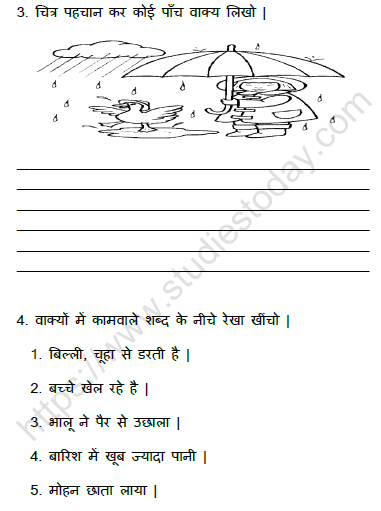 3. चित्र पहचान कर कोई पाँच वाक्य लिखो |
4. वाक्यों में कामवाले शब्द के नीचे रेखा खींचो |
1. बिल्ली, चूहा से डरती है |
2. बच्चे खेल रहे है |
3. भालू ने पैर से उछाला |
4. बारिश में खूब ज्यादा पानी |
5. मोहन छाता लाया |
https://www.studiestoday.com